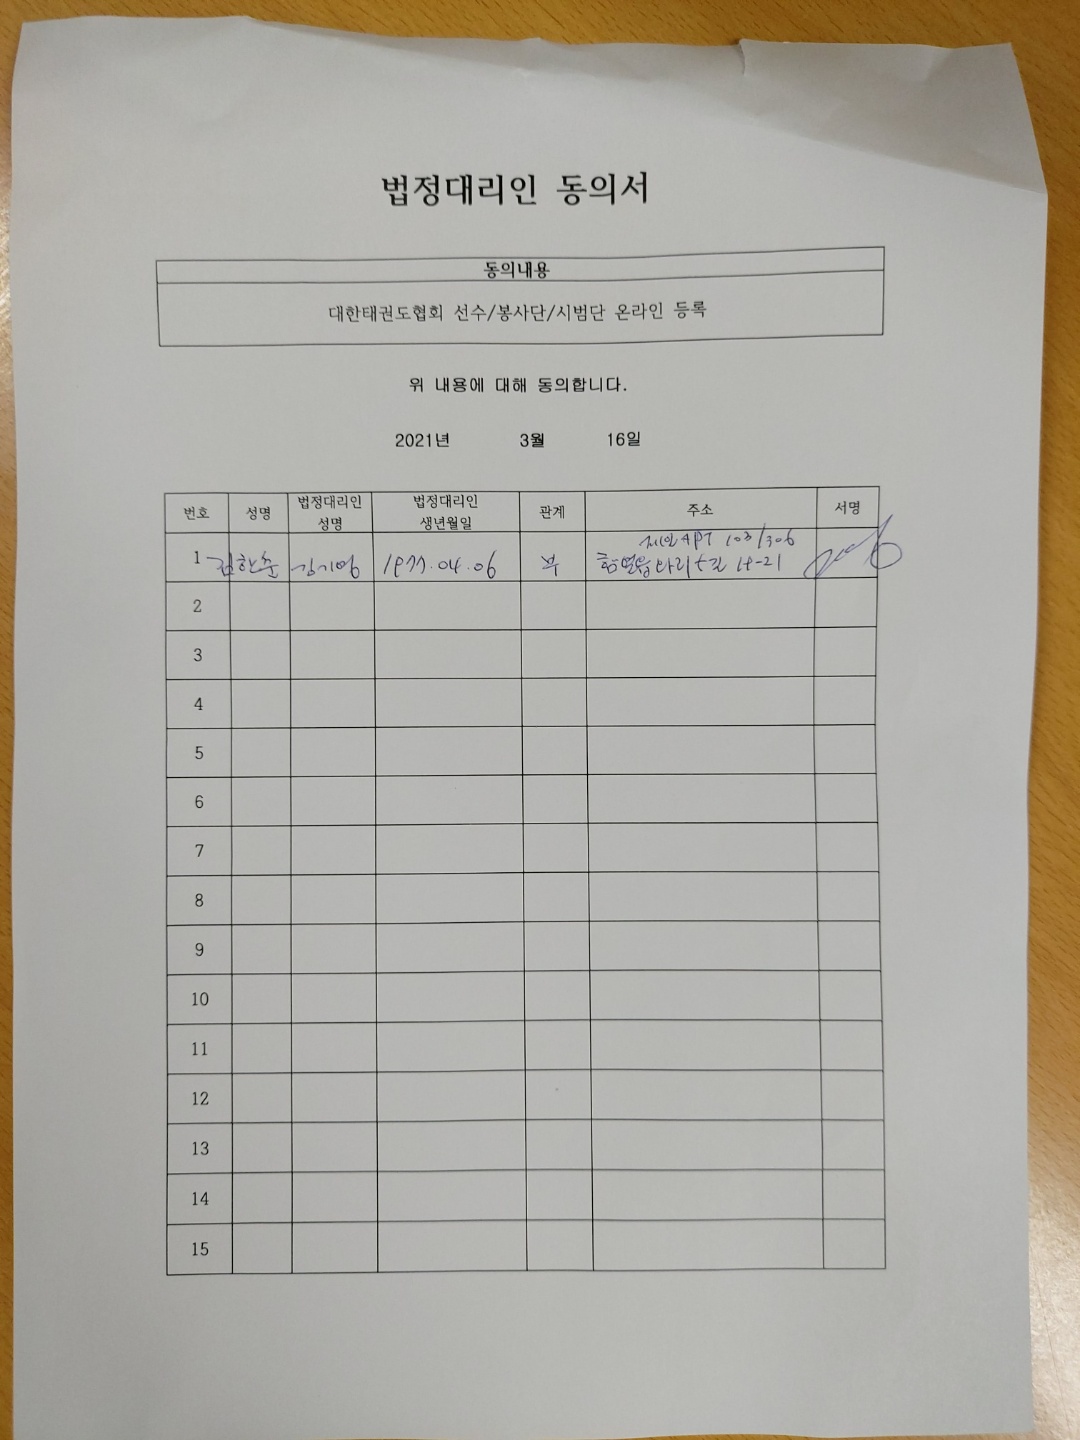 법정대리인 동의서
동의내용
대한태권도협회 선수/봉사단/시범단 온라인 등록
위 내용에 대해 동의합니다.
2021년 3월 16일
번호 성명 법정대리인 성명 법정대리인 생년월일 관계 주소 서명
제일APT 103/306
1 김한준 김기영 1977.04.06 부 함열읍 14-21
2
3
4
5
6
7
8
9
10
11
12
13
14
15